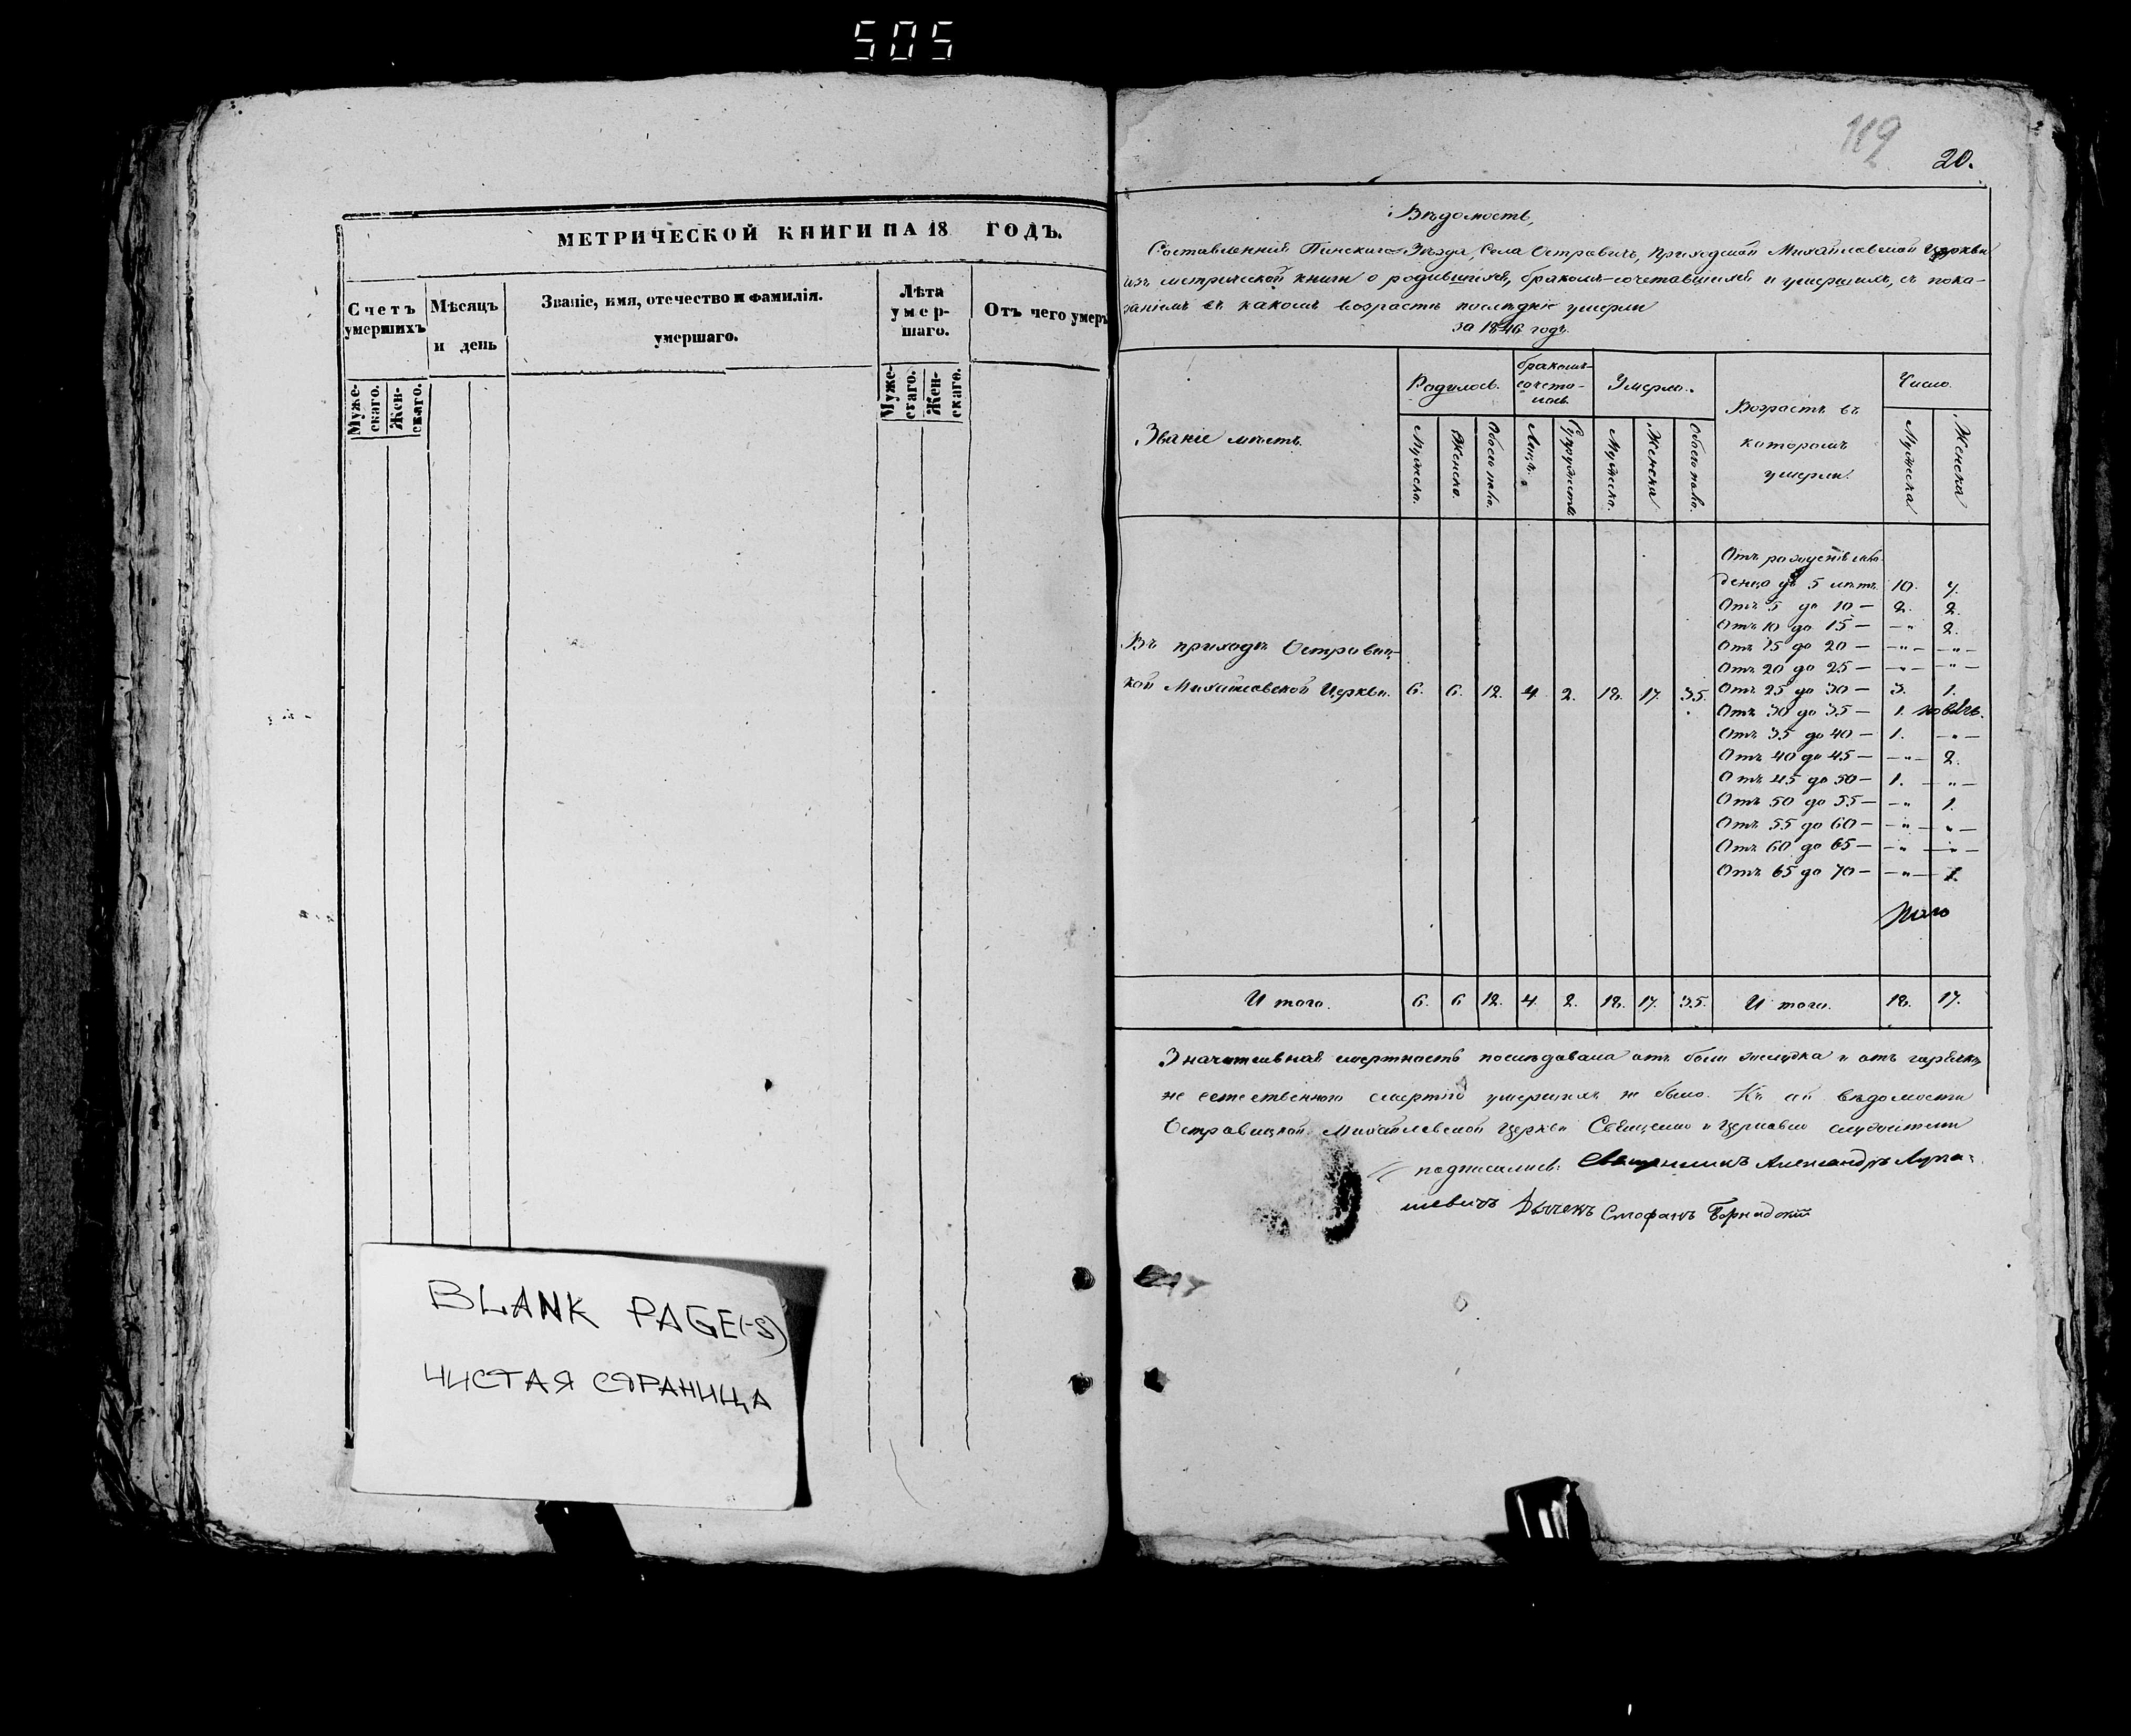 505
МЕТРИЧЕСКОЙ КНИГИ НА 18 ГОДЪ.
Счетъ умершихъ
Мѣсяцъ и день
Званіе, имя, отечество и фамилія.
умершаго.
Лѣта умер-
шаго.
Отъ чего умеръ
Муже-
скаго.
Жен-
скаго.
Муже-
скаго.
Жен-
скаго.
BLANK PAGE(-S)
ЧИСТАЯ СТРАНИЦА
119
20.
Вѣдомость,
Составленная Пинскаго Уѣзда, Села Островичъ, приходской Михайловской Церкви
изъ метрической книги о родившихся, бракомъ-сочетавшихся и умершихъ, съ пока-
заніемъ въ какомъ возрастѣ послѣдніе умерли
за 1846 годъ.
Званіе мѣстъ.
Родилось.
бракомъ-
сочета-
лось
Умерло.
Возрастъ въ
которомъ
умерли.
Число.
Мужеска.
Женска.
Обоего пола.
Лицъ.
Супружествъ
Мужеска.
Женска
Обоего пола.
Мужеска
Женска
Отъ рожденія мла-
денца до 5 лѣтъ 10. 7.
Отъ 5 до 10 — 2. 2.
Отъ 10 до 15 — —"— 2.
Отъ 15 до 20 — —"— —"—
Отъ 20 до 25 — —"— —"—
Въ приходѣ Островиц-
кой Михайловской Церкви. 6. 6. 12. 4. 2. 18. 17. 35.
Отъ 25 до 30 — 3. 1.
Отъ 30 до 35 — 1.
Отъ 35 до 40 — 1. —"—
Отъ 40 до 45 — —"— 2.
Отъ 45 до 50 — 1. —"—
Отъ 50 до 55 — —"— 1.
Отъ 55 до 60 — —"— —"—
Отъ 60 до 65 — —"— —"—
Отъ 65 до 70 — —"— 1.
Итого. 6. 6 12. 4. 2. 18. 17. 35. Итого. 18. 17.
Значительная смертность послѣдовала отъ боли желудка и отъ горячки,
не естественною смертію умершихъ не было. Къ сей вѣдомости
Островицкой Михайловской Церкви Священно и Церковно служители
подписались: Священникъ Александръ Лука-
шевичъ Дьячекъ Стефанъ Бернадскій